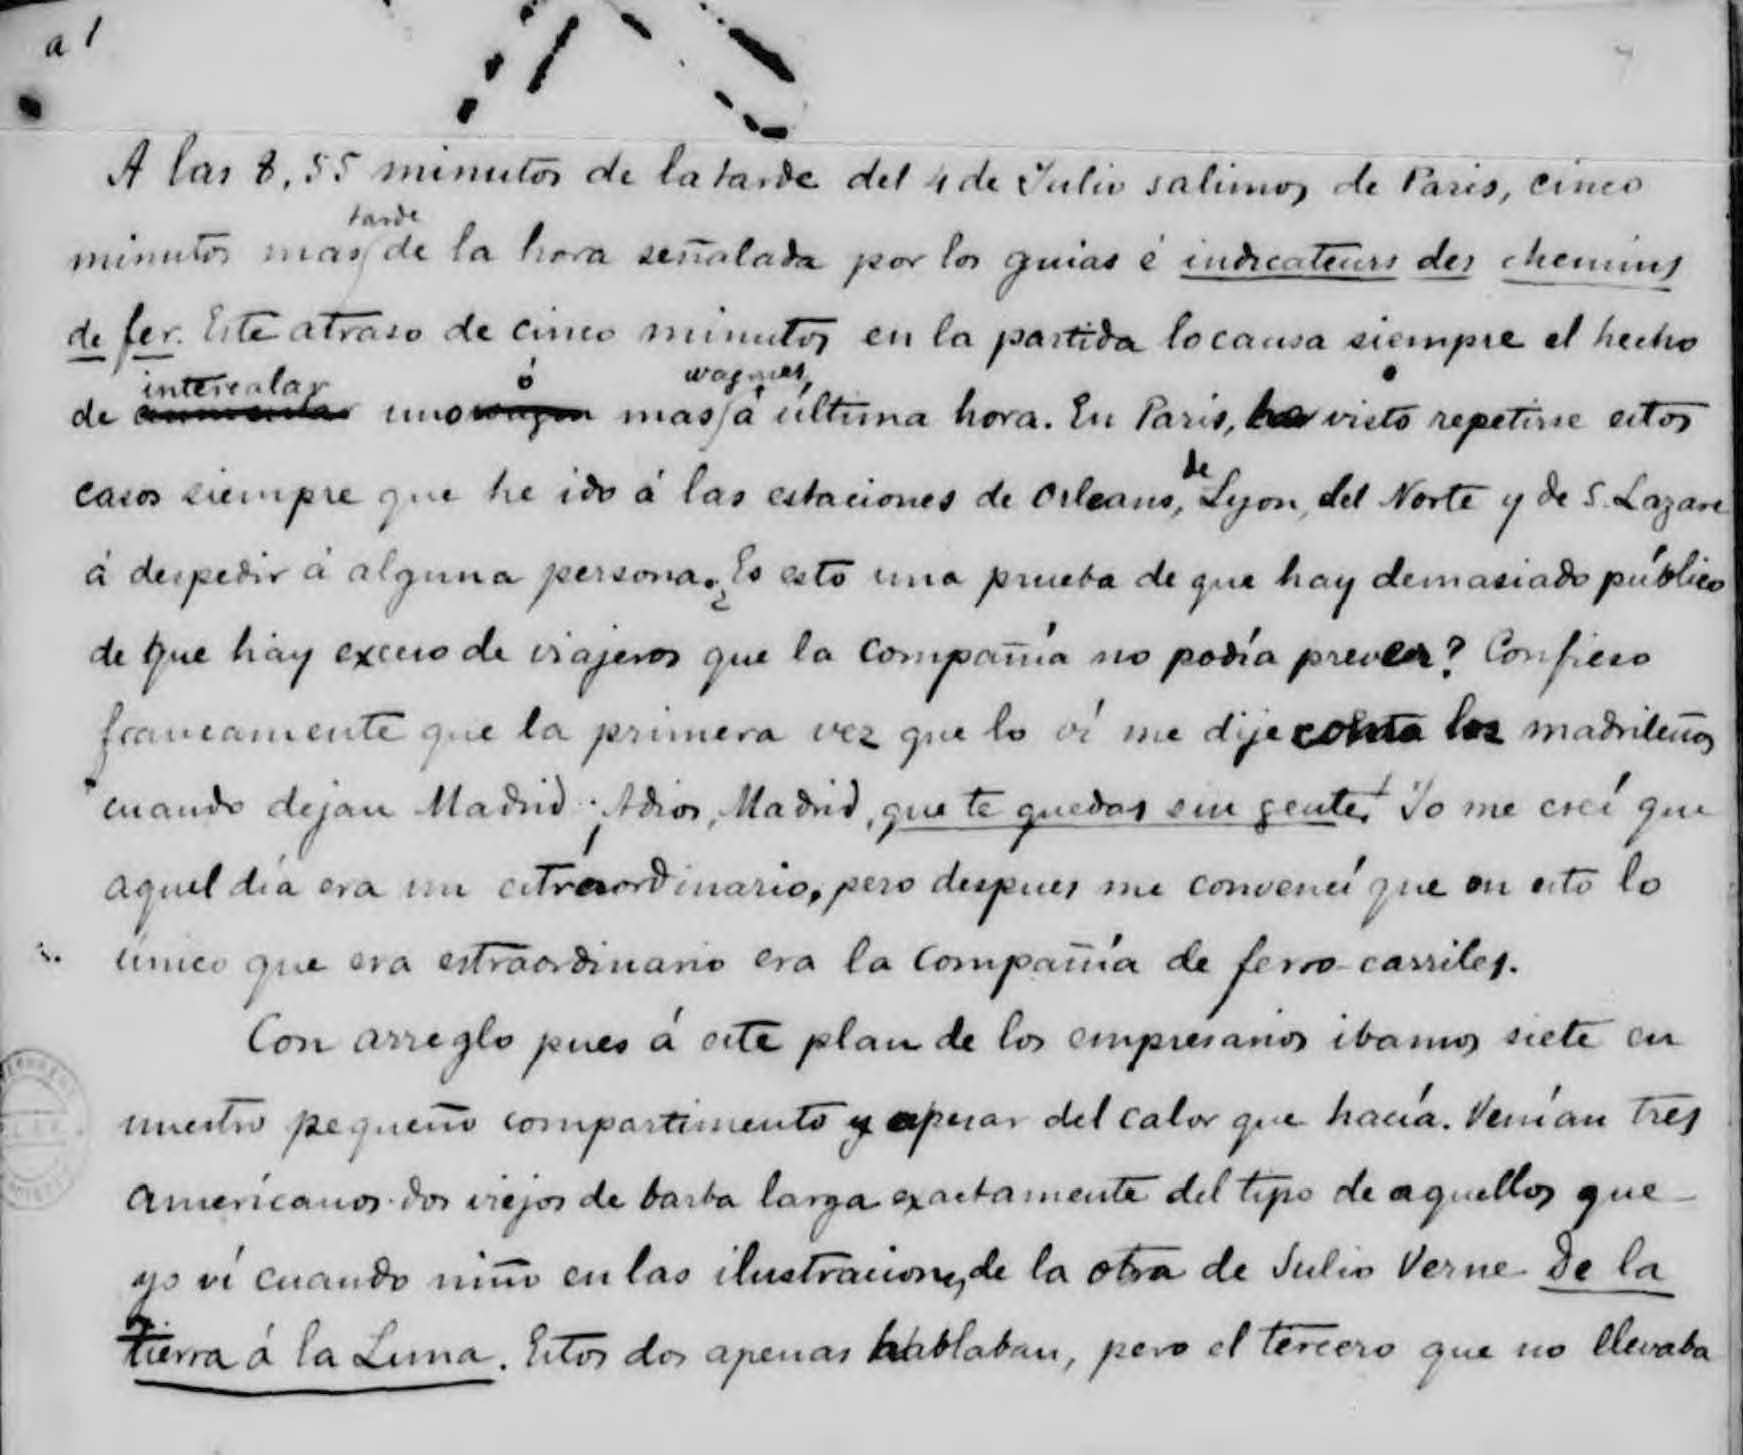 a 1
A las 8,55 minutos de la tarde del 4 de Julio salimos de Paris, cinco
tarde
minutos mas de la hora señalada por los guias é indicateurs des chemins
de fer. Este atraso de cinco minutos en la partida lo causa siempre el hecho
intercalar ó wagones,
de aumentar uno wagon mas á última hora. En Paris, he visto repetirse estos
de
casos siempre que he ido á las estaciones de Orleans, Lyon, del Norte y de S. Lazare
á despedir á alguna persona. ¿Es esto una prueba de que hay demasiado público
de que hay exceso de viajeros que la compañía no podía preveer? Confieso
francamente que la primera vez que lo ví me dije como los madrileños
cuando dejan Madrid: ¡Adios, Madrid, que te quedas sin gente! Yo me creí que
aquel día era un estraordinario, pero despues me convencí que en esto lo
único que era estraordinario era la compañía de ferro-carriles.
Con arreglo pues á este plan de los empresarios ibamos siete en
nuestro pequeño compartimento y apesar del calor que hacía. Venían tres
americanos dos viejos de barba larga exactamente del tipo de aquellos que
yo ví cuando niño en las ilustraciones de la obra de Julio Verne De la
tierra á la Luna. Estos dos apenas hablaban, pero el tercero que no llevaba